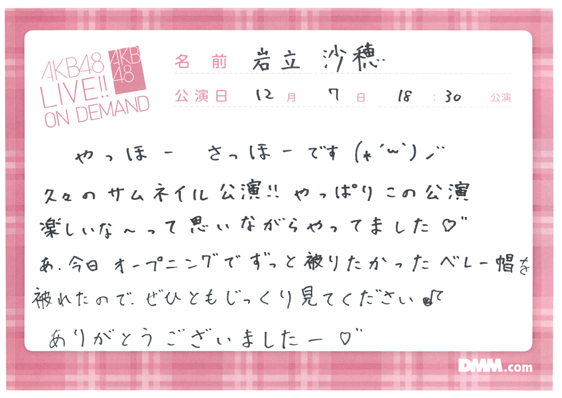 AKB48
LIVE!!
ON DEMAND
AKB
48
名前 岩立 沙穂
公演日 12月 7日 18:30 公演
やっほー さっほーです (*´ω`)ノ
久々のサムネイル公演!! やっぱりこの公演
楽しいな〜って思いながらやってました♡
あ、今日 オープニングで ずっと被りたかった ベレー帽を
被れたので、ぜひともじっくり見てください♪
ありがとうございましたー♡
DMM.com